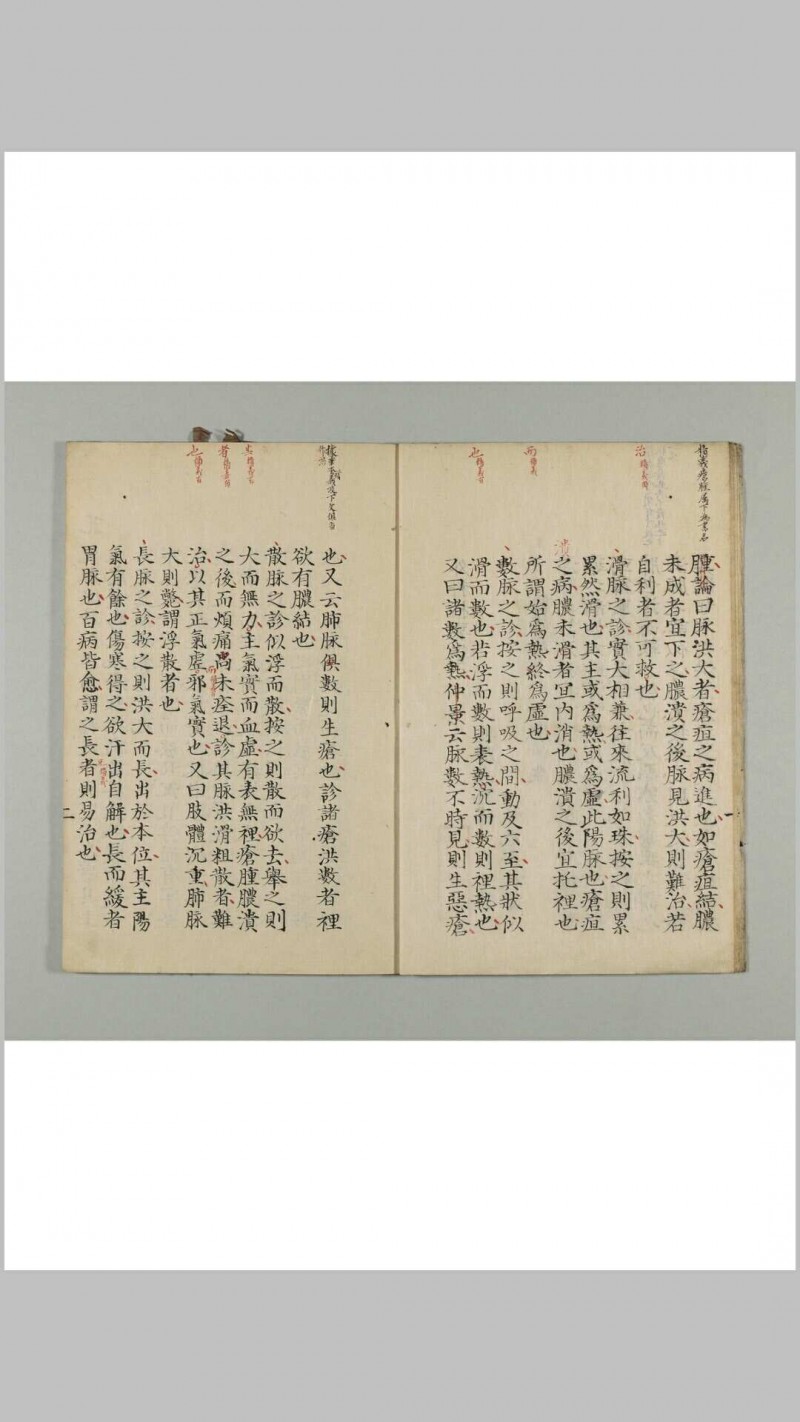 腫論曰脉洪大者瘡疽之病進也如瘡疽結膿
未成者宜下之膿潰之後脉見洪大則難治若
自利者不可救也
滑脉之診實大相兼往來流利如珠按之則累
累然滑也其主或爲熱或爲虛此陽脉也瘡疽
之病膿未滑者宜内消也膿潰之後宜托裡也
所謂始爲熱終爲虛也
數脉之診按之則呼吸之間動及六至其狀似
滑而數也若浮而數則表熱沉而數則裡熱也
又曰諸數爲熱仲景云脉數不時見則生惡瘡
治
而
也
一
也又云肺脉俱數則生瘡也診諸瘡洪數者裡
欲有膿結也
散脉之診似浮而散按之則散而欲去舉之則
大而無力主氣實而血虛有表無裡瘡腫膿潰
之後而煩痛尚未痊退診其脉洪滑粗散者難
治以其正氣虛邪氣實也又曰肢體沉重肺脉
大則斃謂浮散者也
長脉之診按之則洪大而長出於本位其主陽
氣有餘也傷寒得之欲汗出自解也長而緩者
胃脉也百病皆愈謂之長者則易治也
者
也
二